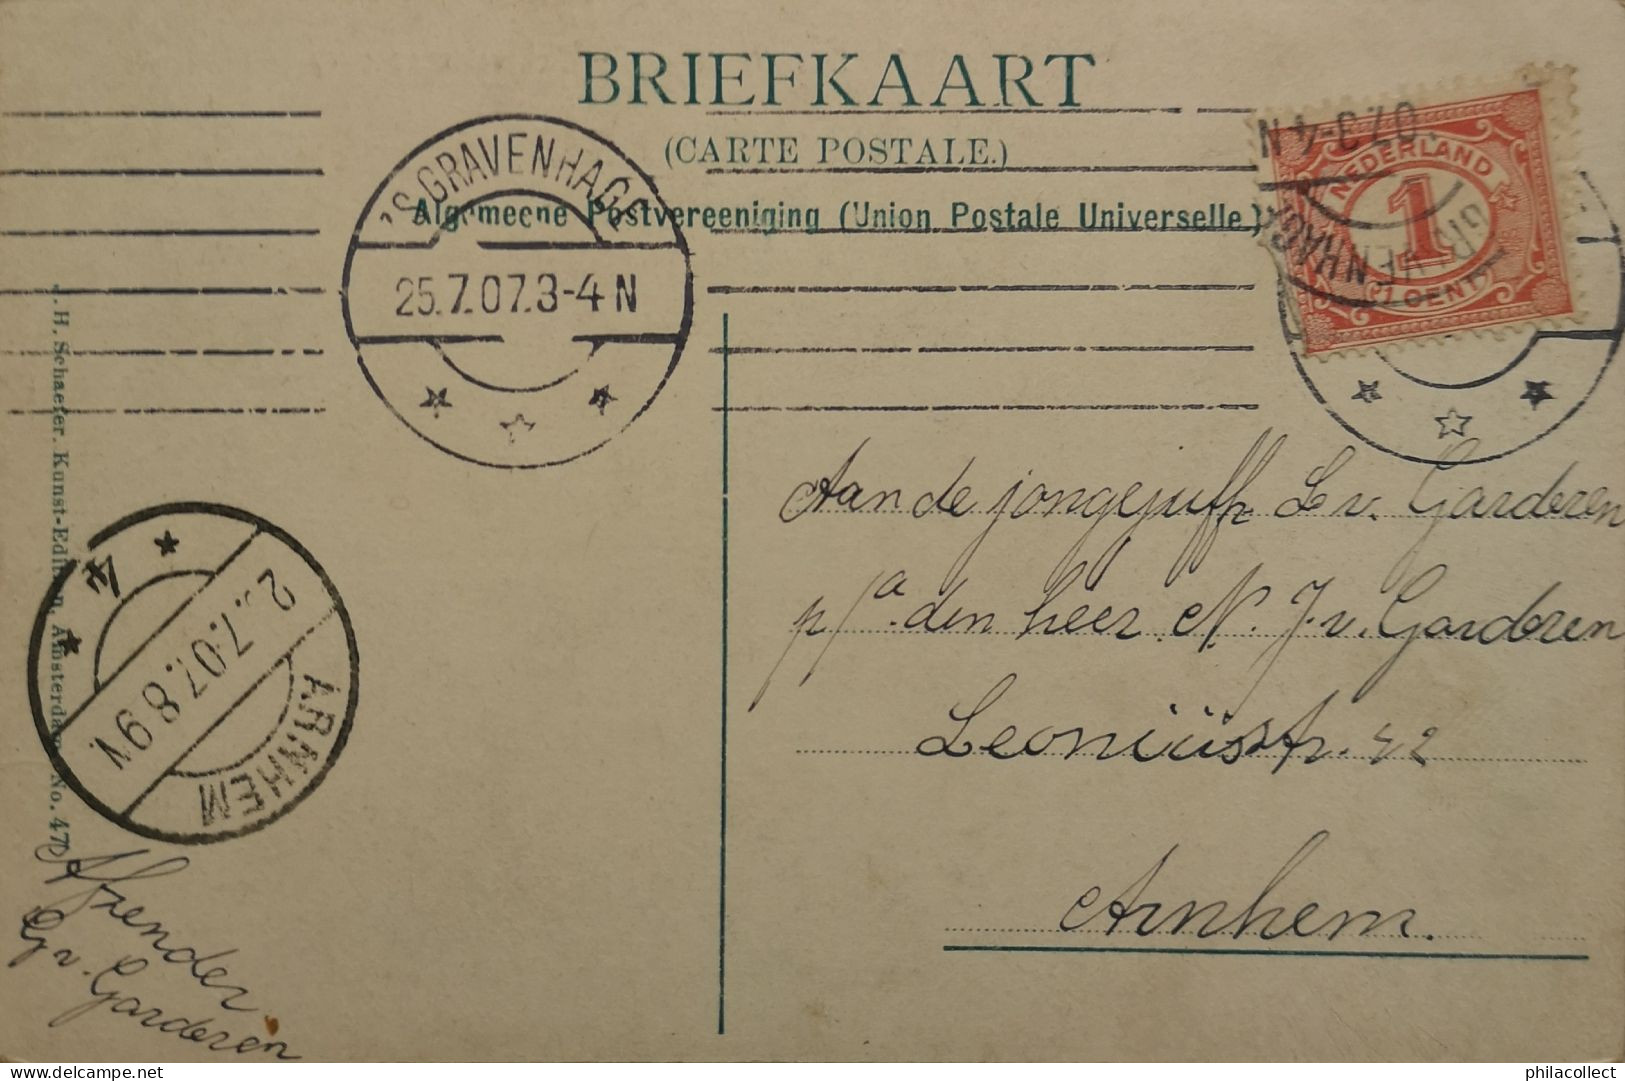 BRIEFKAART
(CARTE POSTALE.)
Algemeene Postvereeniging (Union Postale Universelle.)
'S GRAVENHAGE
25.7.07.3-4 N
07.3-4 N
GRAVENHAGE
NEDERLAND
1
1 CENT
Aan de jongejuffr L v. Garderen
p/a den heer N. J. v. Garderen
Leoniüsstr. 42
Arnhem.
ARNHEM
2 .7.07.8 9V
4
J. H. Schaefer. Kunst-Edition, Amsterdam No. 47
Afzender
G v. Garderen
philacollect